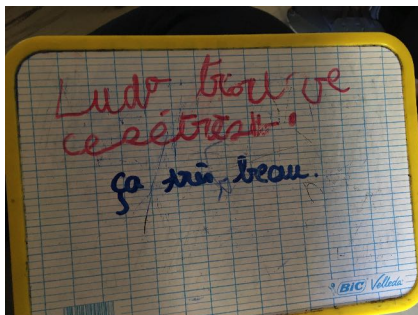 Ludo trouve
ça très beau.
BIC Velleda